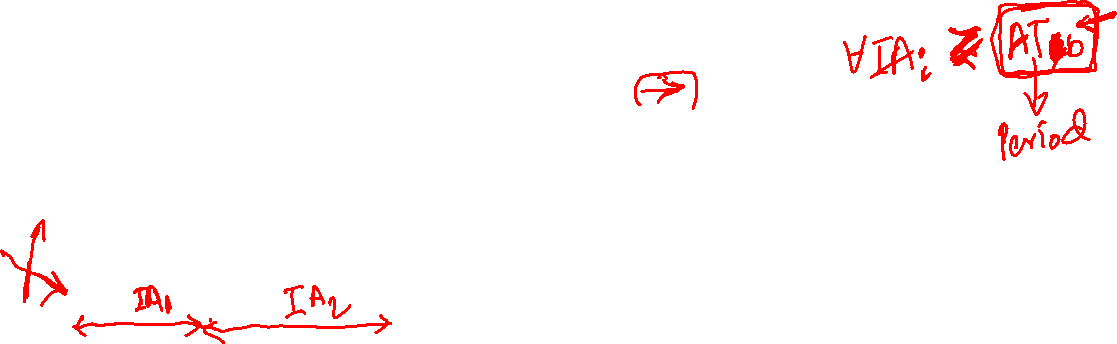 ∀IAi ≥ AT
Period
IA1 IA2